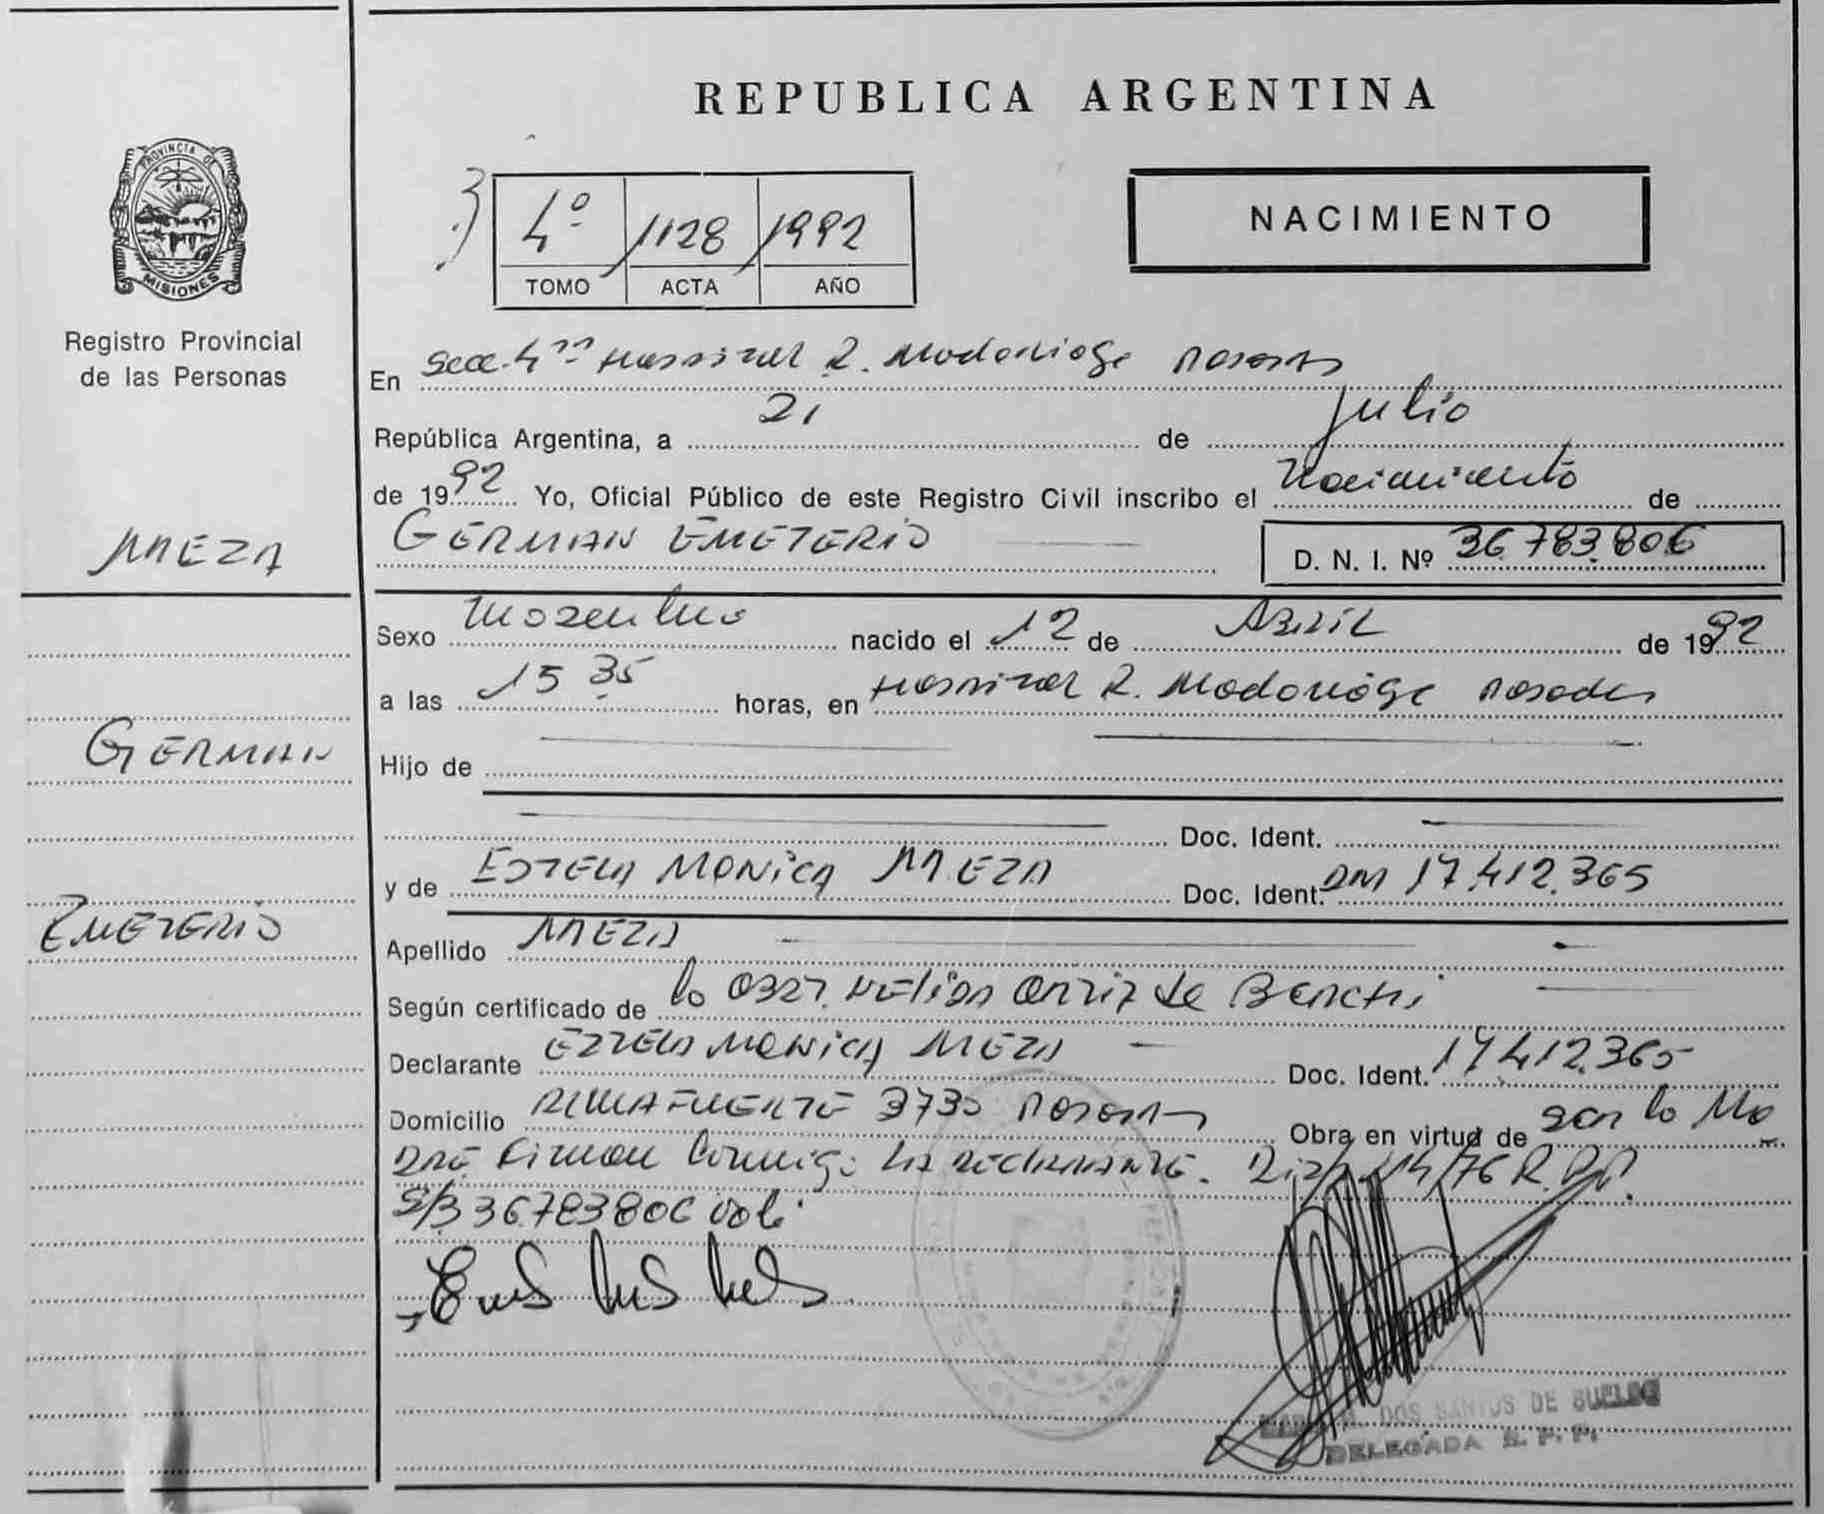 REPUBLICA ARGENTINA
PROVINCIA DE
MISIONES
Registro Provincial
de las Personas
4º 1128 1992
TOMO ACTA AÑO
NACIMIENTO
En Secc. 4ta Hospital R. Madariaga Posadas
República Argentina, a 21 de Julio
de 1992 Yo, Oficial Público de este Registro Civil inscribo el Nacimiento de
MEZA
GERMAN EMETERIO
D. N. I. Nº 36.783.806
Sexo Masculino nacido el 12 de Abril de 1992
a las 15 35 horas, en Hospital R. Madariaga Posadas
GERMAN
Hijo de
Doc. Ident.
y de ESTELA MONICA MEZA Doc. Ident. DNI 17.412.365
EMETERIO
Apellido MEZA
Según certificado de la Obst. Nelida Ortiz de
Declarante ESTELA MONICA MEZA Doc. Ident. 17.412.365
Domicilio 3730 Posadas Obra en virtud de ser la Ma
dre Firman Conmigo la declarante. Disp. 14/76 R.P.P.
S/B 36.783.806 vale
DOS SANTOS DE
DELEGADA R. P. P.